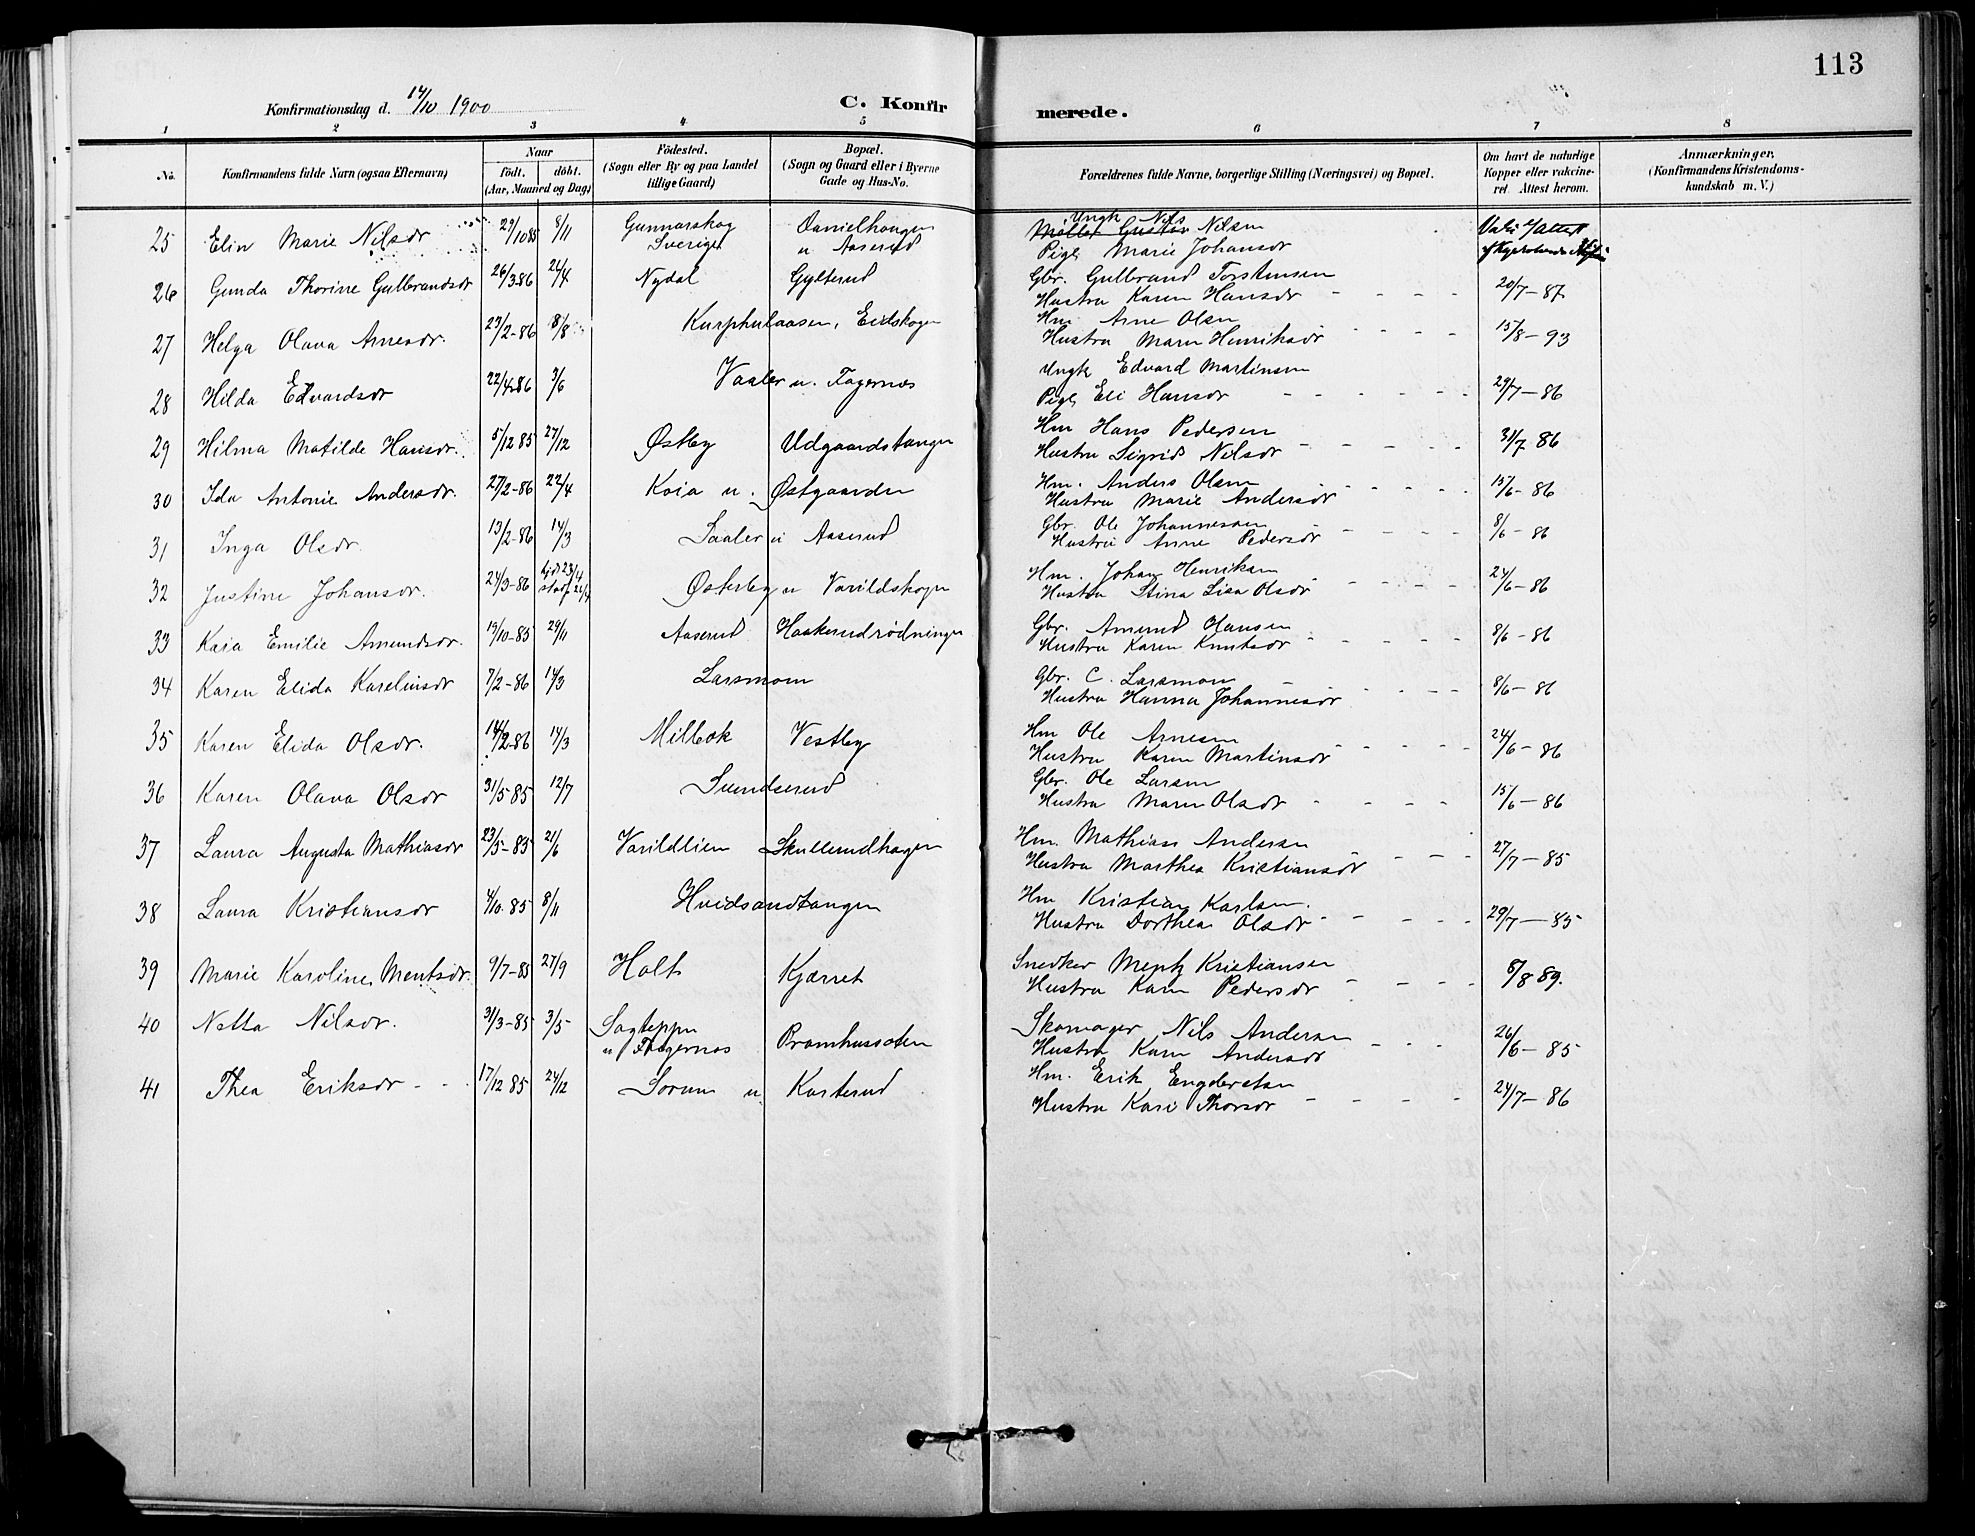 113
Konfirmationsdag d. 14/10 1900
C. Konfirmerede.
1 2 3 4 5 6 7 8
No.
Konfirmandens fulde Navn (ogsaa Efternavn)
Naar
födt. döbt.
(Aar, Maaned og Dag)
Födested.
(Sogn eller By og paa Landet
tillige Gaard)
Bopæl.
(Sogn og Gaard eller i Byerne
Gade og Hus-No.
Forældrenes fulde Navne, borgerlige Stilling (Næringsvei) og Bopæl.
Om havt de naturlige
Kopper eller vakcine-
ret. Attest herom.
Anmærkninger.
(Konfirmandens Kristendoms-
kundskab m. V.)
25 Elin Marie Nilsdr 29/10 85 8/11 Gunnarskog Sverige Danielhaugen u Aaserud Ungk Nils
Møller Gustav Nilsen
Pige Marie Johansdr
26 Gunda Thorine Gulbrandsdr 26/3 86 24/4 Nydal Gylterud Gbr. Gulbrand Torstensen
Hustru Karen Hansdr 20/7-87
27 Helga Olava Arnesdr. 23/2-86 8/8 Kurphulaasen, Eidskogen Hm Arne Olsen
Hustru Maren Henriksdr 15/8-93
28 Hilda Edvardsdr 22/4-86 3/6 Vaaler u. Fagernæs Ungk Edvard Martinsen
Pige Eli Hansdr 29/7-86
29 Hilma Matilde Hansdr. 5/12 85 27/12 Østby Udgaardstangen Hm Hans Pedersen
Hustru Sigrid Nilsdr 31/7 86
30 Ida Antonie Andersdr. 27/2-86 22/4 Koia u. Østgaarden Hm. Anders Olsen
Hustru Marie Andersdr 15/6-86
31 Inga Olsdr. 13/2-86 14/3 Saaler u Aaserud Gbr. Ole Johannessen
Hustru Anne Pedersdr 8/6-86
32 Justine Johansdr. 24/3-86 Østerby u Varildskogen Hm. Johan Henriksen
Hustru Stina Lisa Olsdr 24/6-86
33 Kaia Emilie Amundsdr. 19/10-85 29/11 Aaserud Haakerudrødningen Gbr. Amund Hansen
Hustru Karen Knutsdr 8/6-86
34 Karen Elida Karelinsdr 7/2-86 14/3 Larsmoen Gbr. C. Larsmoen
Hustru Hanna Johannesdr 8/6-86
35 Karen Elida Olsdr. 14/2-86 14/3 Milbak Vestby Hm Ole Arnesen
Hustru Karen Martinsdr 24/6-86
36 Karen Olava Olsdr 31/5-85 12/7 Svendserud Gbr. Ole Larsen
Hustru Maren Olsdr 15/6-86
37 Laura Augusta Mathiasdr 23/5-85 21/6 Varildlien Skullerudhagen Hm. Mathias Andersen
Hustru Marthea Kristiansdr 27/7-85
38 Laura Kristiansdr 4/10. 85 8/11 Hvidsandtangen Hm Kristian Karlsen.
Hustru Dorthea Olsdr 29/7-85
39 Marie Karoline Mentsdr. 9/7-85 27/9 Holt Kjærret Snedker Mentz Kristiansen
Hustru Karen Pedersdr 8/8 89.
40 Netta Nilsdr. 31/3-85 3/5 Sagteppen u Fagernæs Bramhussæten Skomager Nils Andersen
Hustru Karen Andersdr 26/6-85
41 Thea Eriksdr 17/12 85 24/12 Sorum u. Kasterud Hm. Erik Engdersten
Hustru Kari Thorsdr 24/7-86